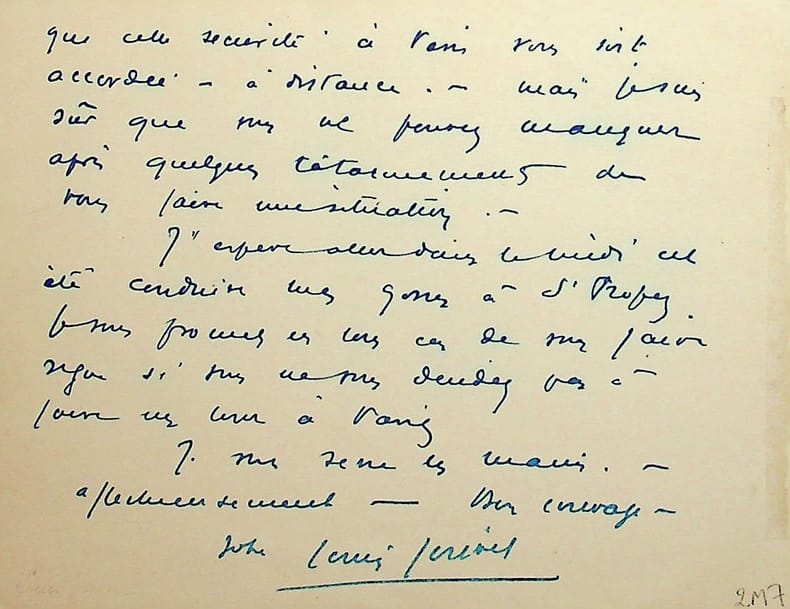 que cette sécurité à Paris vous soit
accordée – à distance. – mais je suis
sûr que vous ne pouvez manquer
après quelques tâtonnements de
vous faire une situation. –
J'espère aller dans le midi cet
été conduire mes gosses à St Tropez.
Je vous promets en tous cas de vous faire
signe si vous ne vous décidez pas à
faire un tour à Paris
Je vous serre les mains. –
affectueusement — Bon courage –
votre Louis
2M7